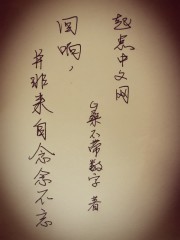 起点中文网
桑不带数字 著
回响，
并非来自念念不忘